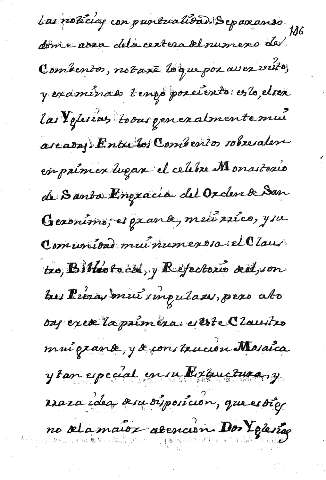 las noticias con puntualidad. Separando
186
dome aora de la certeza del numero de
Combentos, notare lo que por aver visto,
y examinado tengo por cierto: esto, el ser
las Yglesias todas generalmente mui
aseadas. Entre los Combentos sobresalen
en primer lugar el celebre Monasterio
de Santa Engracia del Orden de San
Geronimo; es grande, mui rico, y su
Comunidad mui numerosa: el Claus
tro, Biblioteca, y Refectorio de el, son
tres Piezas mui singulares, pero a to
das excede la primera: es este Claustro
mui grande, y de construcción Mosaica
y tan especial en su Extructura, y
rara idea de su disposicion, que es dig
no de la maior atencion Dos Yglesias